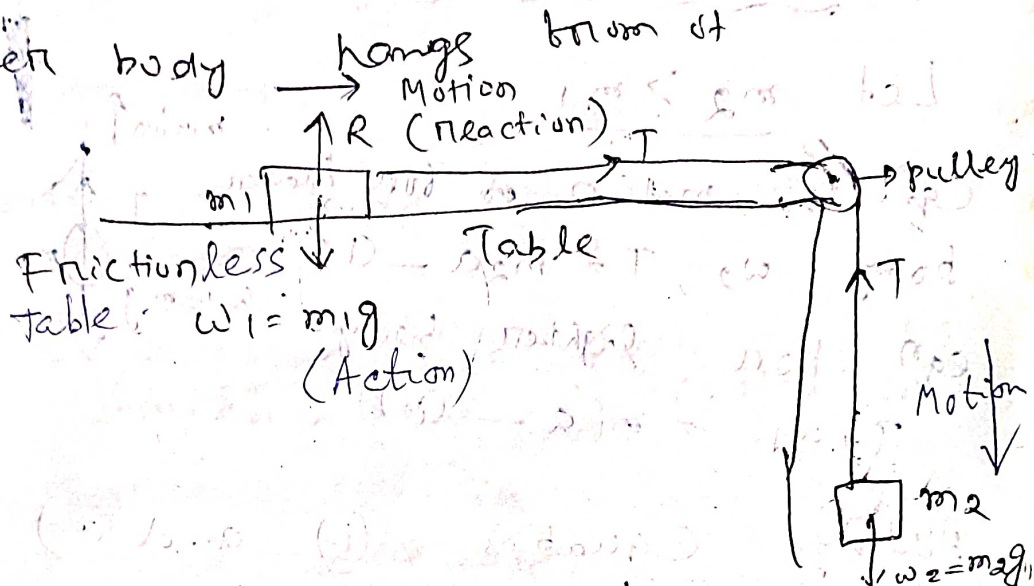 body hangs from it
Motion
R (reaction)
T
pulley
m1
Table
Frictionless
Table. w1 = m1g
(Action)
T
Motion
m2
w2 = m2g